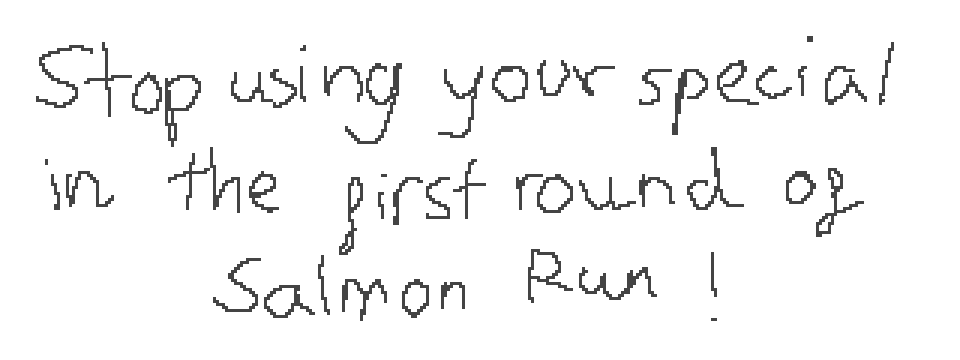 Stop using your special
in the first round of
Salmon Run!